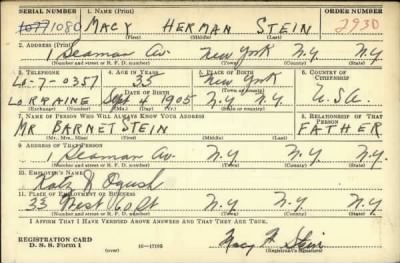 SERIAL NUMBER 1. NAME (Print) ORDER NUMBER
1077 1080 MACY HERMAN STEIN 2930
(First) (Middle) (Last)
2. ADDRESS (Print)
1 Seaman Av. New York N.Y. N.Y.
(Number and street or R. F. D. number) (Town) (County) (State)
3. TELEPHONE 4. AGE IN YEARS 5. PLACE OF BIRTH 6. COUNTRY OF CITIZENSHIP
Lo-7-0357 35 New York
DATE OF BIRTH (Town or county)
LORRAINE Sept 4 1905 N.Y. N.Y. USA.
(Exchange) (Number) (Mo.) (Day) (Yr.) (State or country)
7. NAME OF PERSON WHO WILL ALWAYS KNOW YOUR ADDRESS 8. RELATIONSHIP OF THAT PERSON
MR BARNET STEIN FATHER
(Mr., Mrs., Miss) (First) (Middle) (Last)
9. ADDRESS OF THAT PERSON
1 Seaman Av. N.Y. N.Y. N.Y.
(Number and street or R. F. D. number) (Town) (County) (State)
10. EMPLOYER'S NAME
Katz & Ogush
11. PLACE OF EMPLOYMENT OR BUSINESS
33 West 60 St N.Y. N.Y. N.Y.
(Number and street or R. F. D. number) (Town) (County) (State)
I AFFIRM THAT I HAVE VERIFIED ABOVE ANSWERS AND THAT THEY ARE TRUE.
REGISTRATION CARD
D. S. S. Form 1 16—17105 Macy H Stein